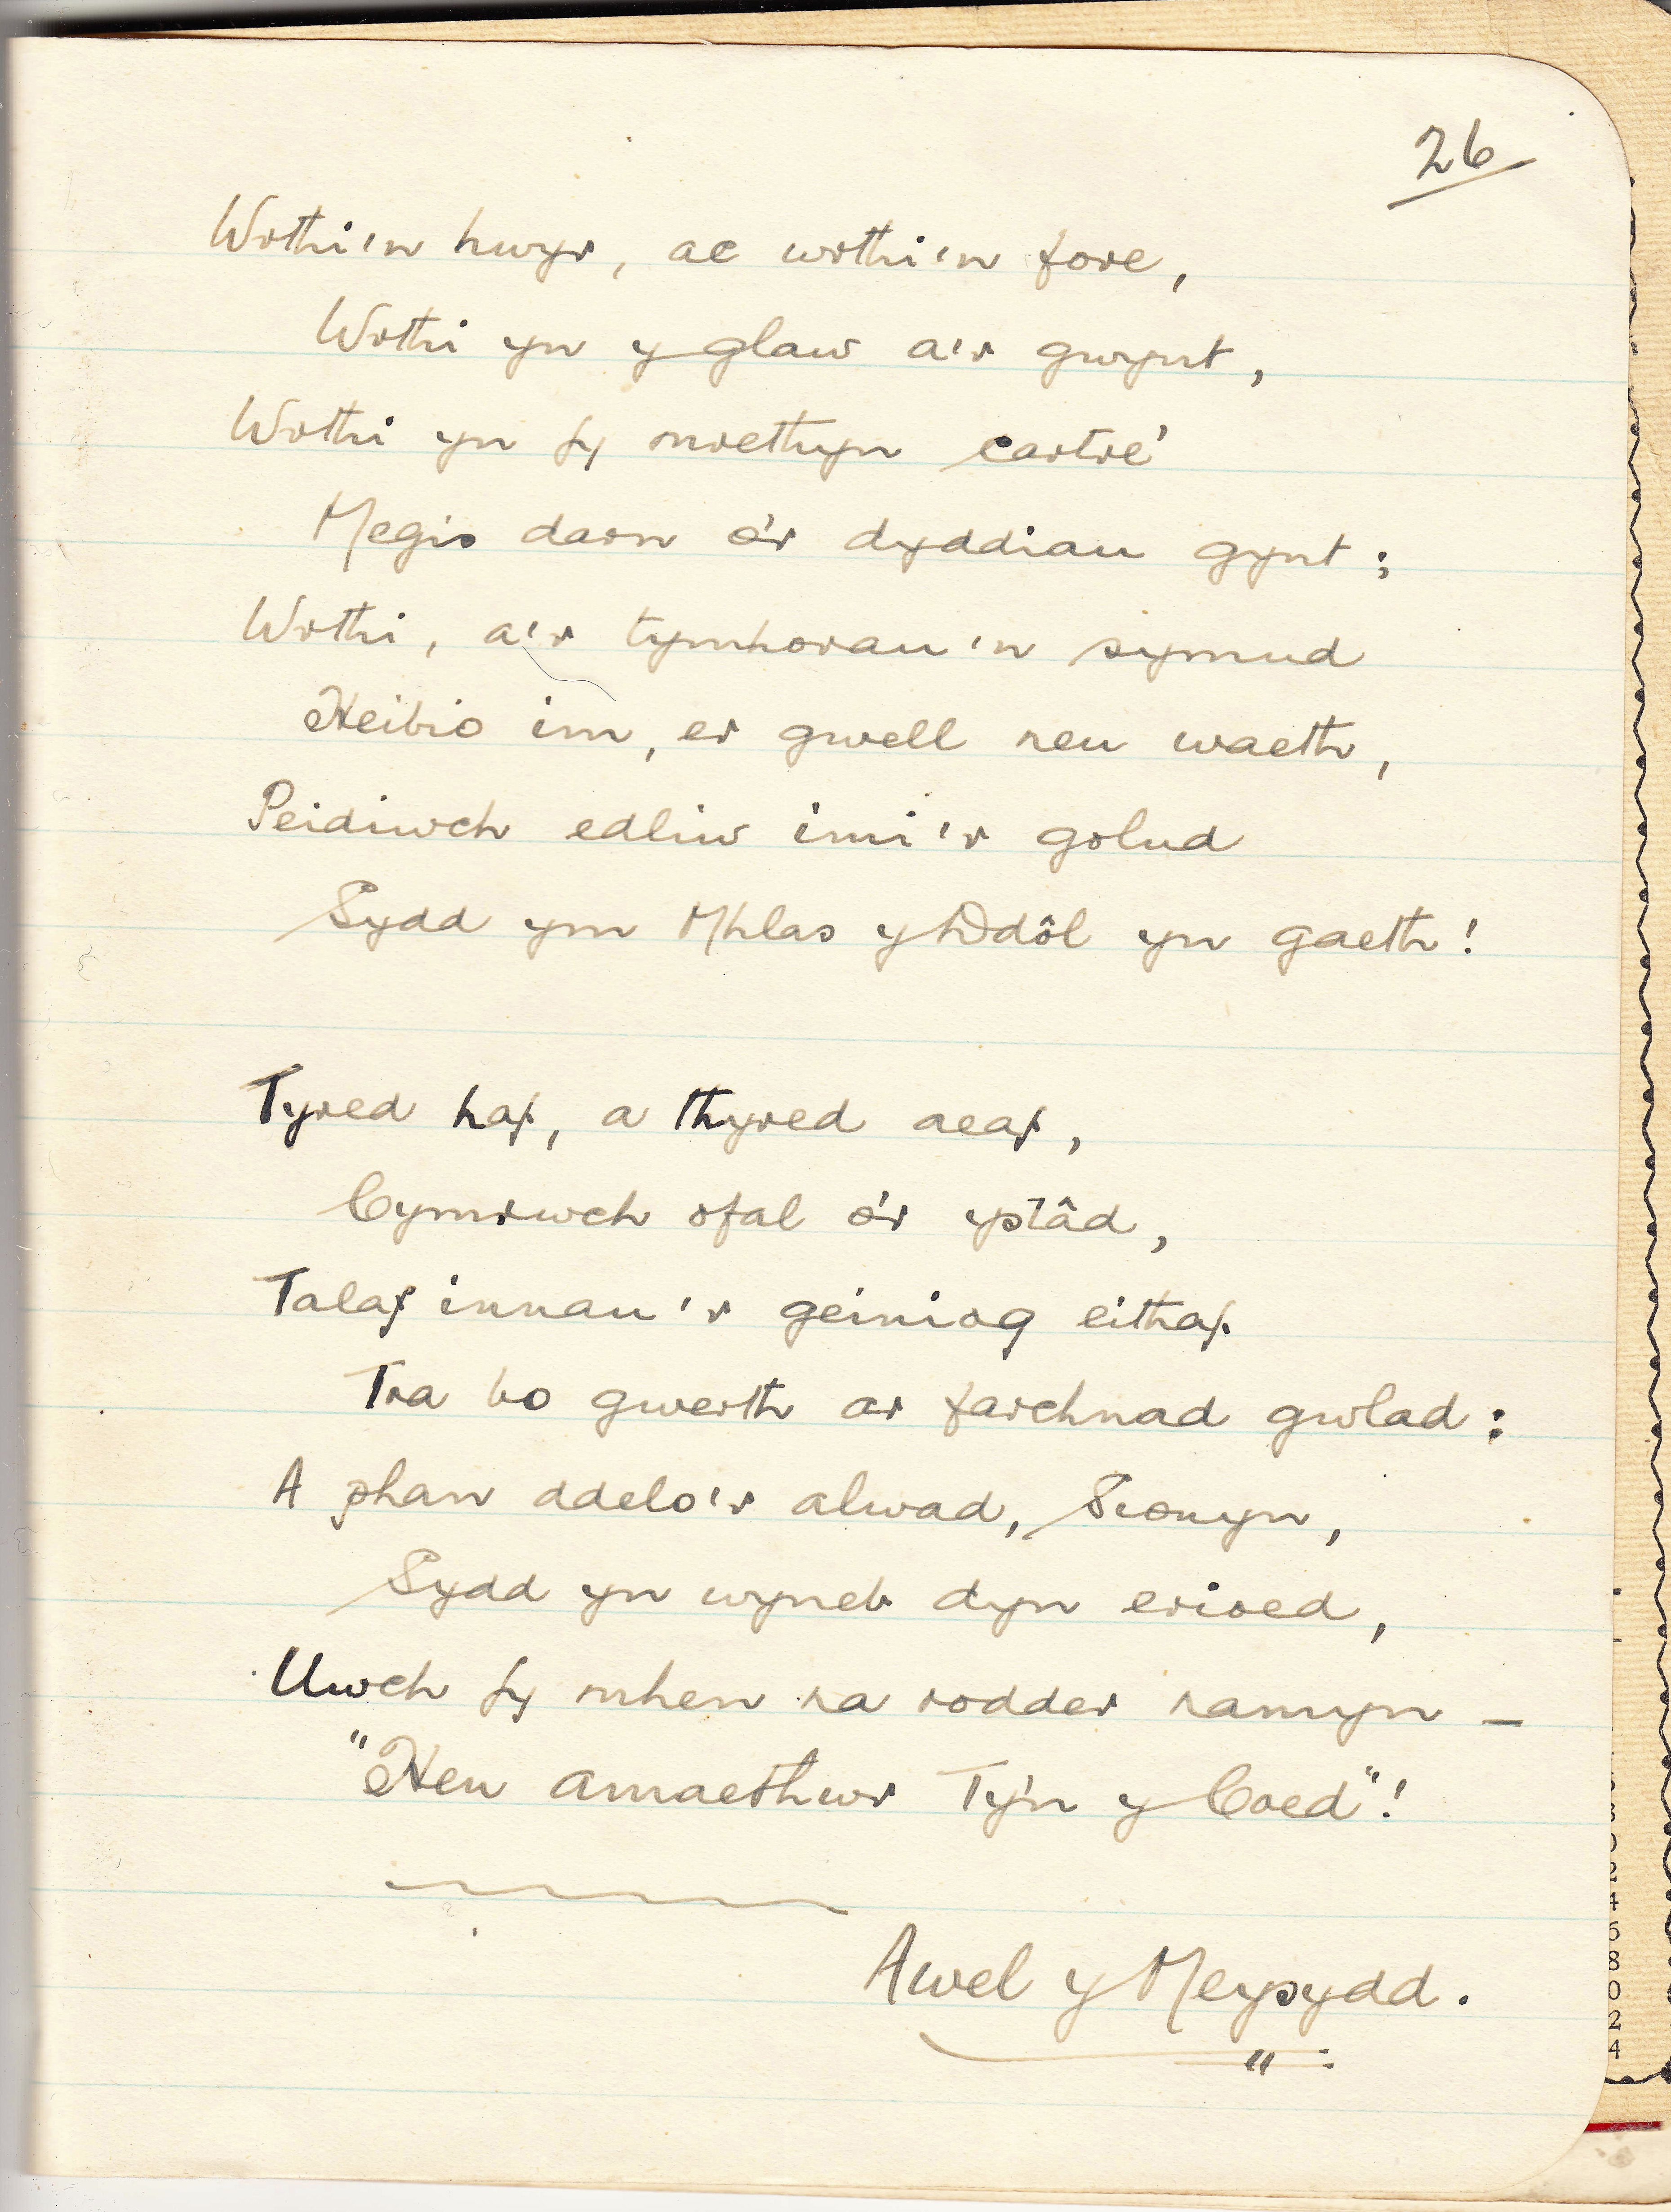 26
Wrthi'n hwyr, ac wrthi'n fore,
Wrthi yn y glaw a'r gwynt,
Wrthi yn fy mrethyn cartre'
Megis darn o'r dyddiau gynt;
Wrthi, a'r tymhorau'n symud
Heibio im, er gwell neu waeth,
Peidiwch edliw imi'r golud
Sydd ym Mhlas y Ddôl yn gaeth!
Tyred haf, a thyred aeaf,
Cymrwch ofal o'r ystâd,
Talaf innau'r geiniog eithaf
Tra bo gwerth ar farchnad gwlad:
A phan ddelo'r alwad, Sionyn,
Sydd yn wyneb dyn erioed,
Uwch fy mhen na rodder namyn –
"Hen amaethwr Ty'n y Coed"!
Awel y Meysydd.